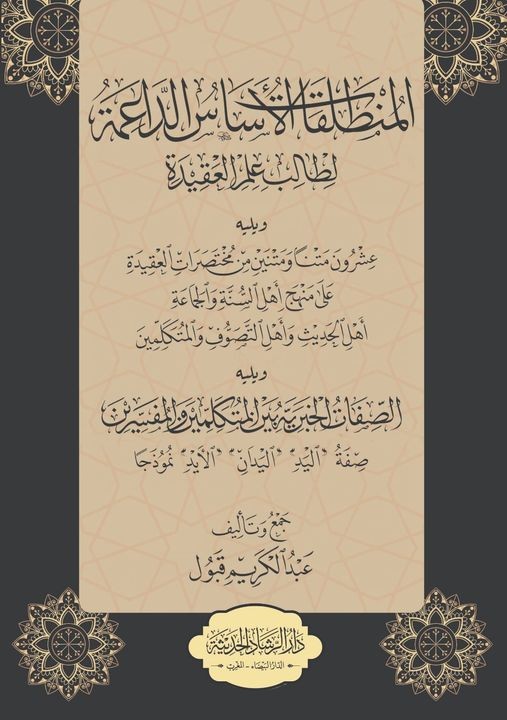 المُنْطَلَقَاتُ الأَسَاسُ الدَّاعِمَةُ
لِطَالِبِ عِلْمِ العَقِيدَةِ
ويليه
عِشْرُونَ مَتْناً وَمَتْنَيْنِ مِنْ مُخْتَصَرَاتِ العَقِيدَةِ
عَلَى مَنْهَجِ أَهْلِ السُّنَّةِ وَالجَمَاعَةِ
أَهْلِ الحَدِيثِ وَأَهْلِ التَّصَوُّفِ وَالمُتَكَلِّمِينَ
ويليه
الصِّفَاتُ الخَبَرِيَّةُ بَيْنَ المُتَكَلِّمِينَ وَالمُفَسِّرِينَ
صِفَةُ "اليَدِ" "اليَدَانِ" "الأَيْدِ" نَمُوذَجًا
جَمْعُ وَتَأْلِيف
عَبْدُ الكَرِيمِ قَبُول
دَارُ الرَّشَادِ الحَدِيثَة
الدَّارُ البَيْضَاء - المغرب